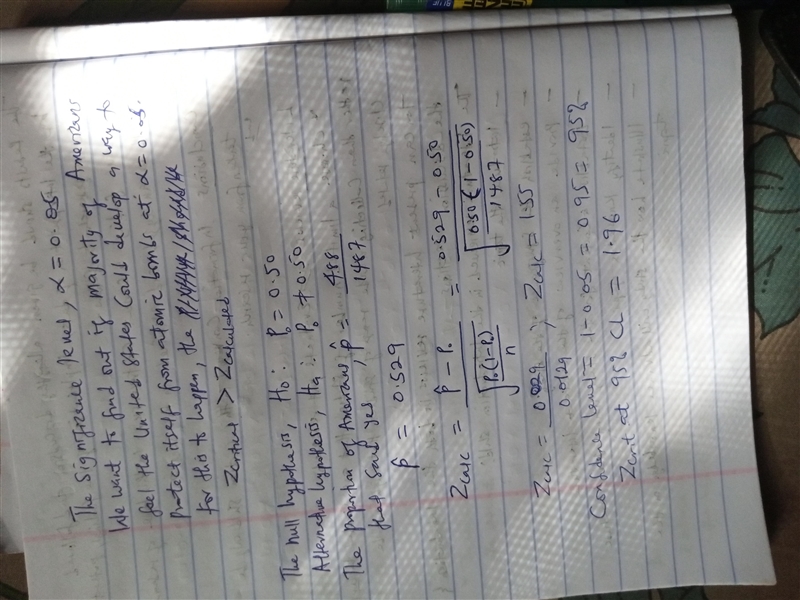 The Significance level, α = 0.05
We want to find out if majority of Americans
feel the United States could develop a way to
protect itself from atomic bombs at α = 0.05.
For this to happen, the
Zcritical > Zcalculated
The null hypothesis, H₀: P = 0.50
Alternative hypothesis, Ha: P₀ ≠ 0.50
The proportion of Americans, p̂ = 488 / 1487
that said yes
p̂ = 0.529
Zcalc = (p̂ - P₀) / √(P₀(1-P₀) / n) = (0.529 - 0.50) / √(0.50(1-0.50) / 1487)
Zcalc = 0.029 / 0.0129 , Zcalc = 1.55
Confidence level = 1-0.05 = 0.95 = 95%
Zcrit at 95% CL = 1.96